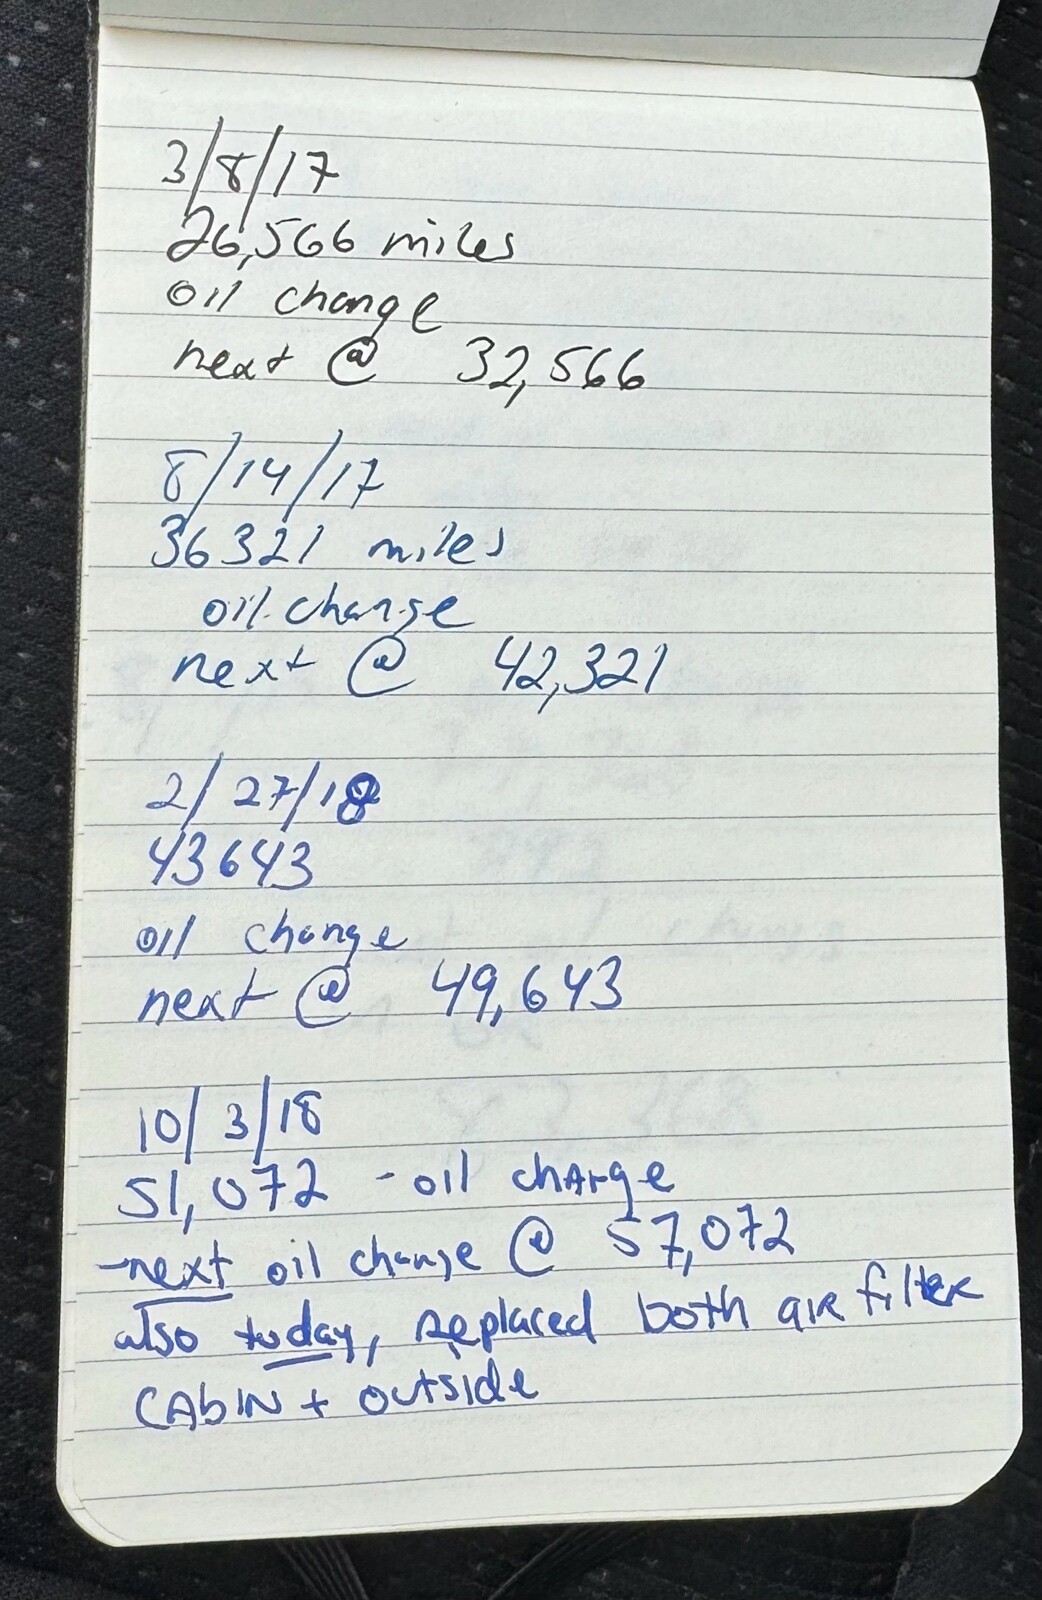 3/8/17
26,566 miles
oil change
next @ 32,566
8/14/17
36321 miles
oil change
next @ 42,321
2/27/18
43643
oil change
next @ 49,643
10/3/18
51,072 - oil change
-next oil change @ 57,072
also today, replaced both air filter
CAbIN + outside